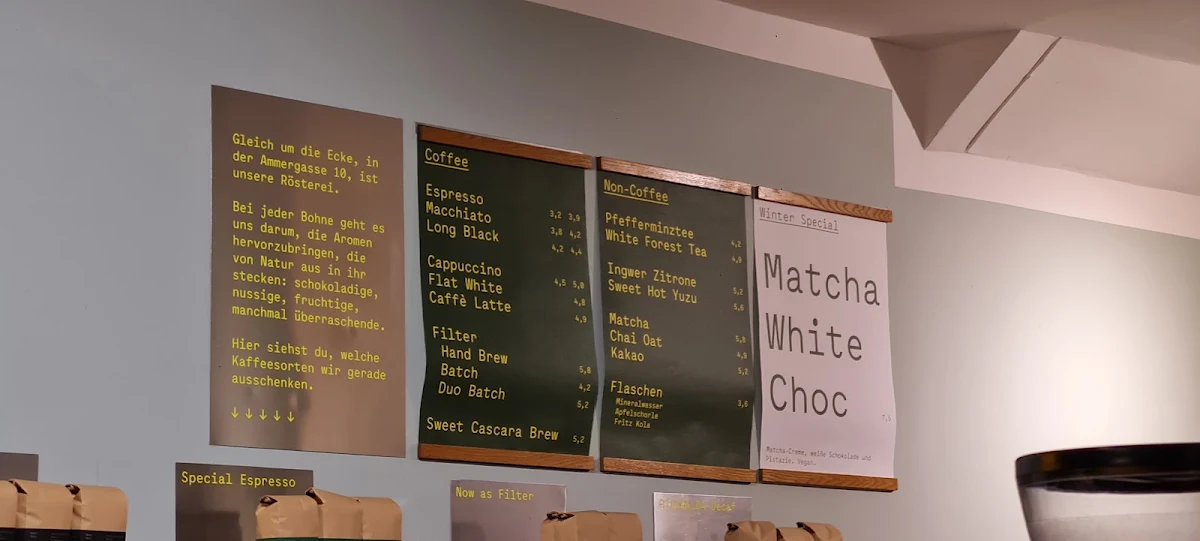 Gleich um die Ecke, in
der Ammergasse 10, ist
unsere Rösterei.
Bei jeder Bohne geht es
uns darum, die Aromen
hervorzubringen, die
von Natur aus in ihr
stecken: schokoladige,
nussige, fruchtige,
manchmal überraschende.
Hier siehst du, welche
Kaffeesorten wir gerade
ausschenken.
↓ ↓ ↓ ↓ ↓
Coffee
Espresso 3,2 3,9
Macchiato 3,8 4,2
Long Black 4,2 4,4
Cappuccino 4,5 5,0
Flat White 4,8
Caffè Latte 4,9
Filter
Hand Brew 5,8
Batch 4,2
Duo Batch 5,2
Sweet Cascara Brew 5,2
Non-Coffee
Pfefferminztee 4,2
White Forest Tea 4,9
Ingwer Zitrone 5,2
Sweet Hot Yuzu 5,6
Matcha 5,9
Chai Oat 4,9
Kakao 5,2
Flaschen 3,8
Mineralwasser
Apfelschorle
Fritz Kola
Winter Special
Matcha
White
Choc
7,5
Matcha-Creme, weiße Schokolade und
Pistazie. Vegan.
Special Espresso
Now as Filter
Decaf